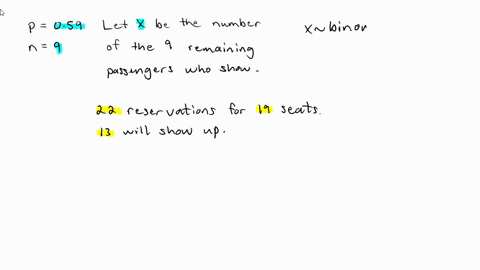 p = 0.59 Let X be the number
n = 9 of the 9 remaining
passengers who show.
X~binom
22 reservations for 19 seats.
13 will show up.